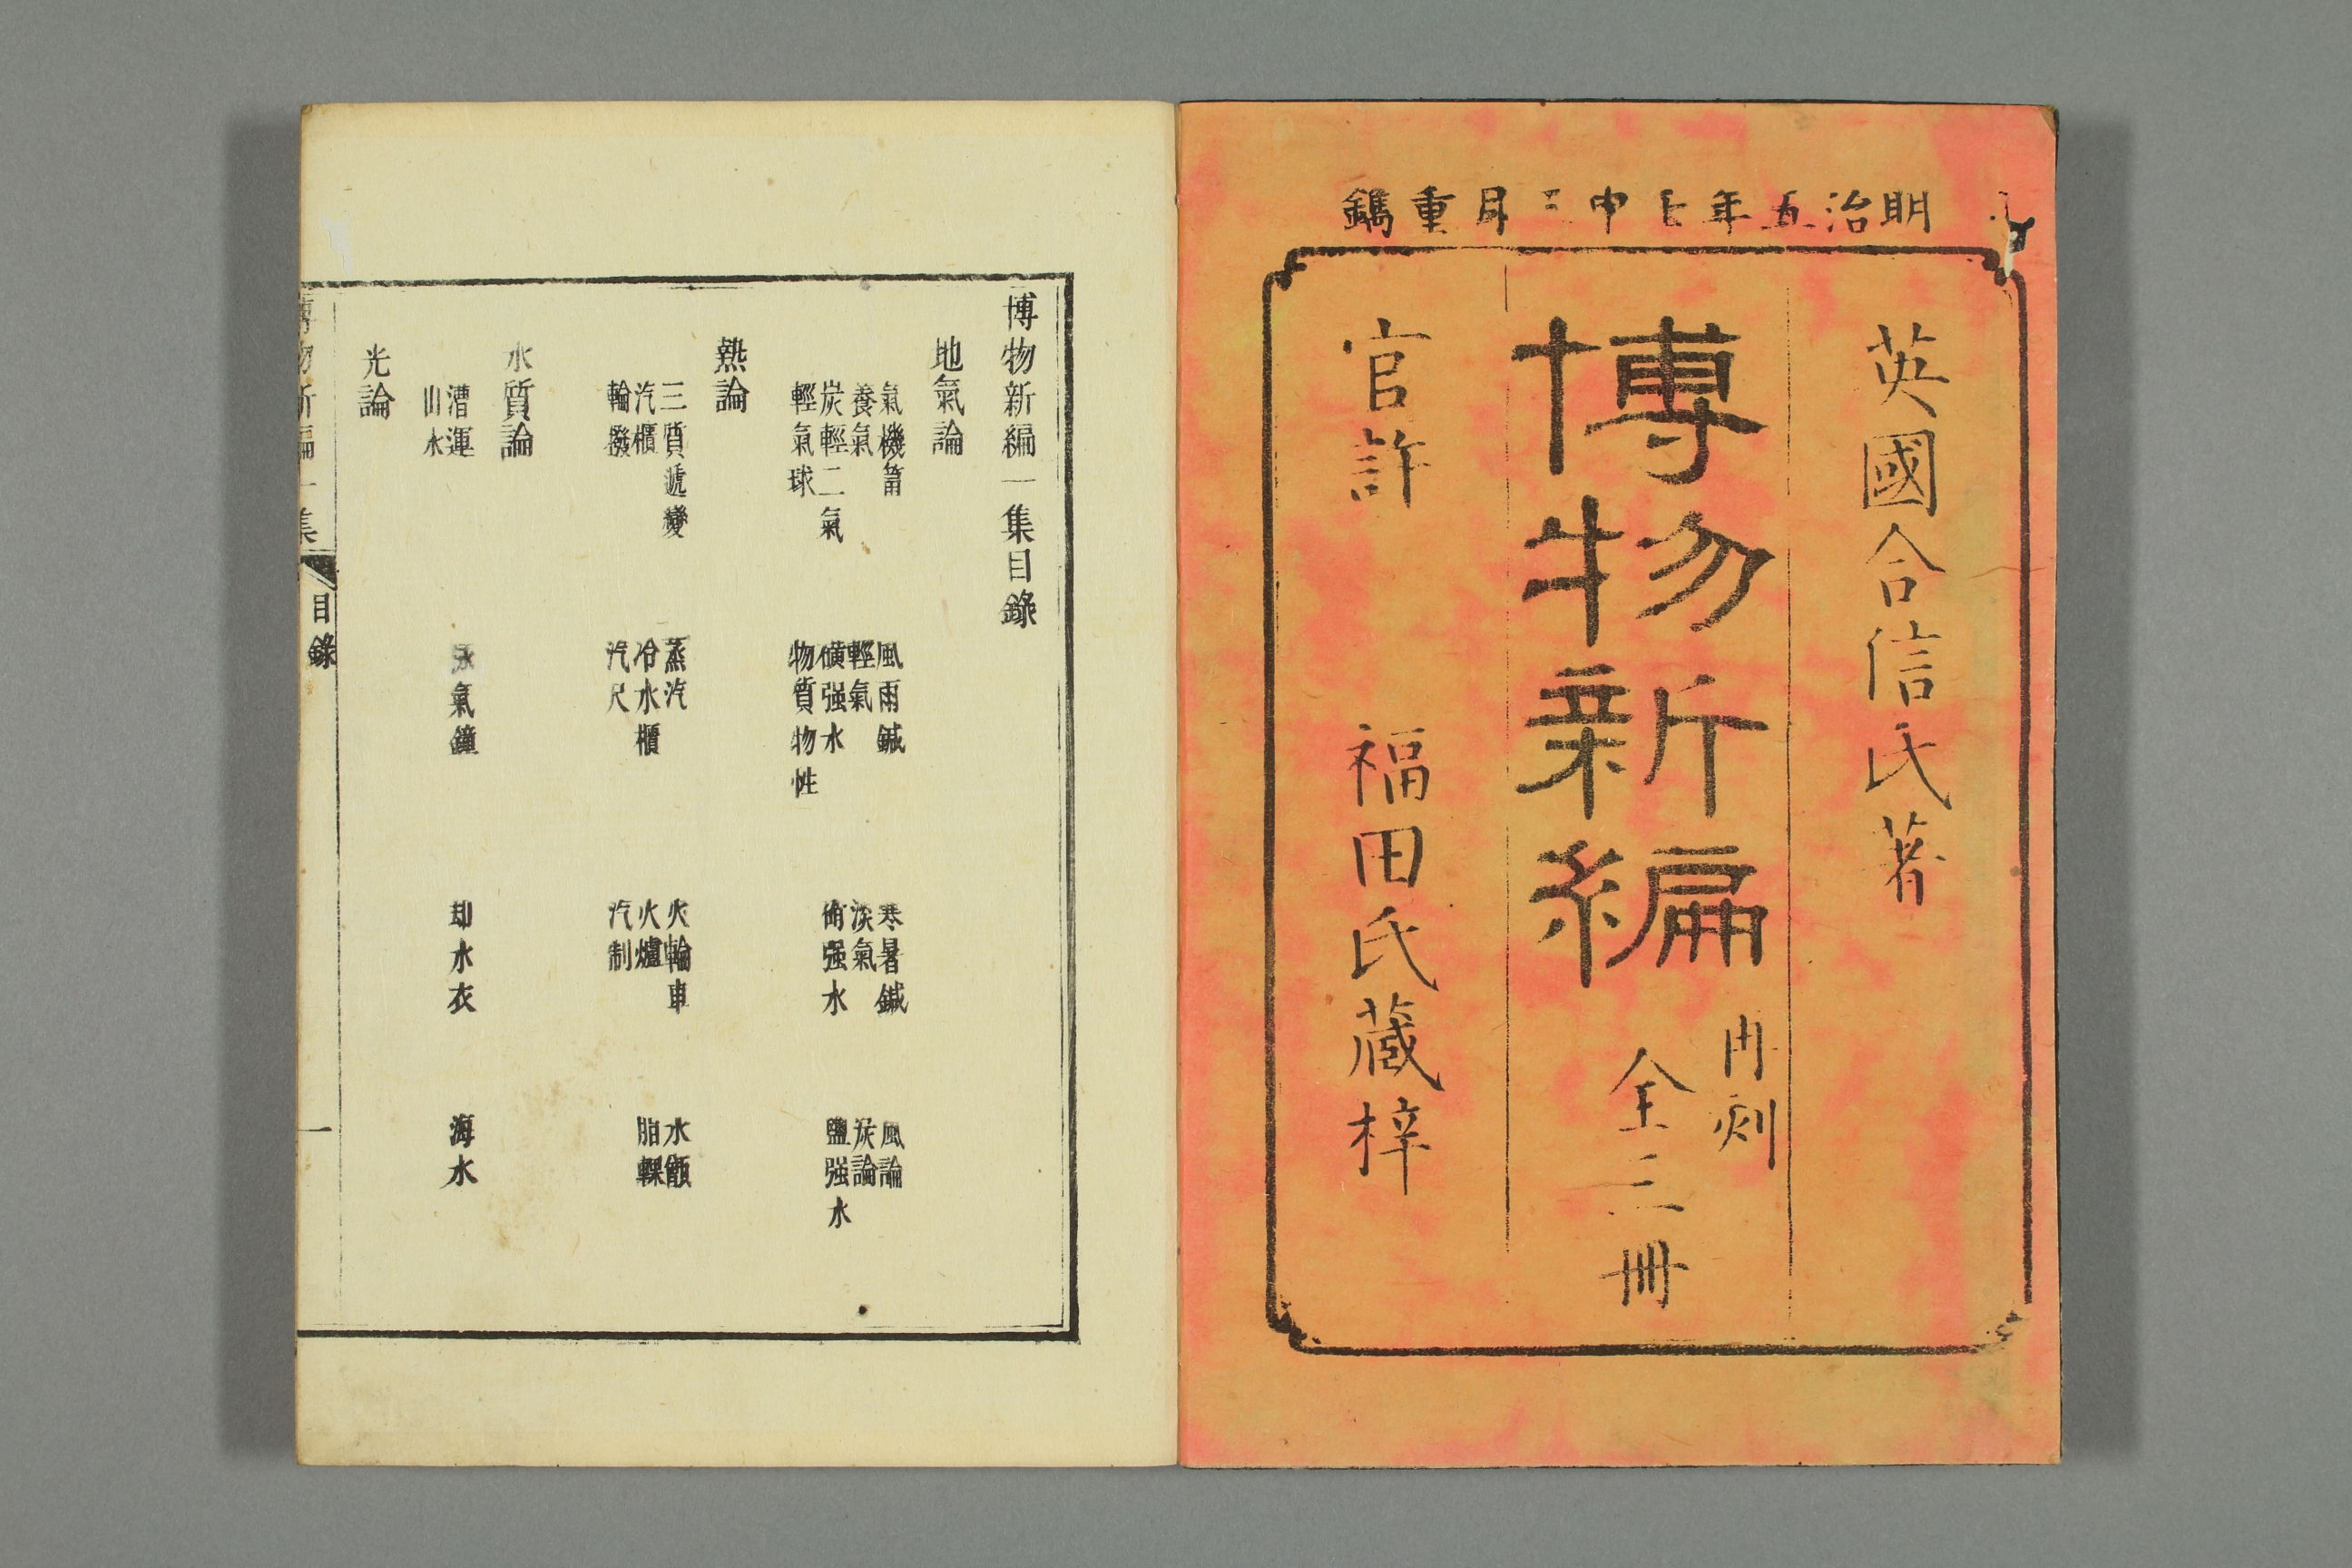 明治五年壬申三月重鐫
英國合信氏著
博物新編
再刻
全三冊
官許 福田氏藏梓
博物新編一集目錄
地氣論
氣機筩 風雨鍼 寒暑鍼 風論
養氣 輕氣 淡氣 炭論
炭輕二氣 礦强水 硝强水 鹽强水
輕氣球 物質物性
熱論
三質遞變 蒸汽 火輪車 水甑
汽櫃 冷水櫃 火爐 脂輠
輪撥 汽尺 汽制
水質論
漕運 泳氣鐘 却水衣 海水
山水
光論
博物新編一集 目錄 一